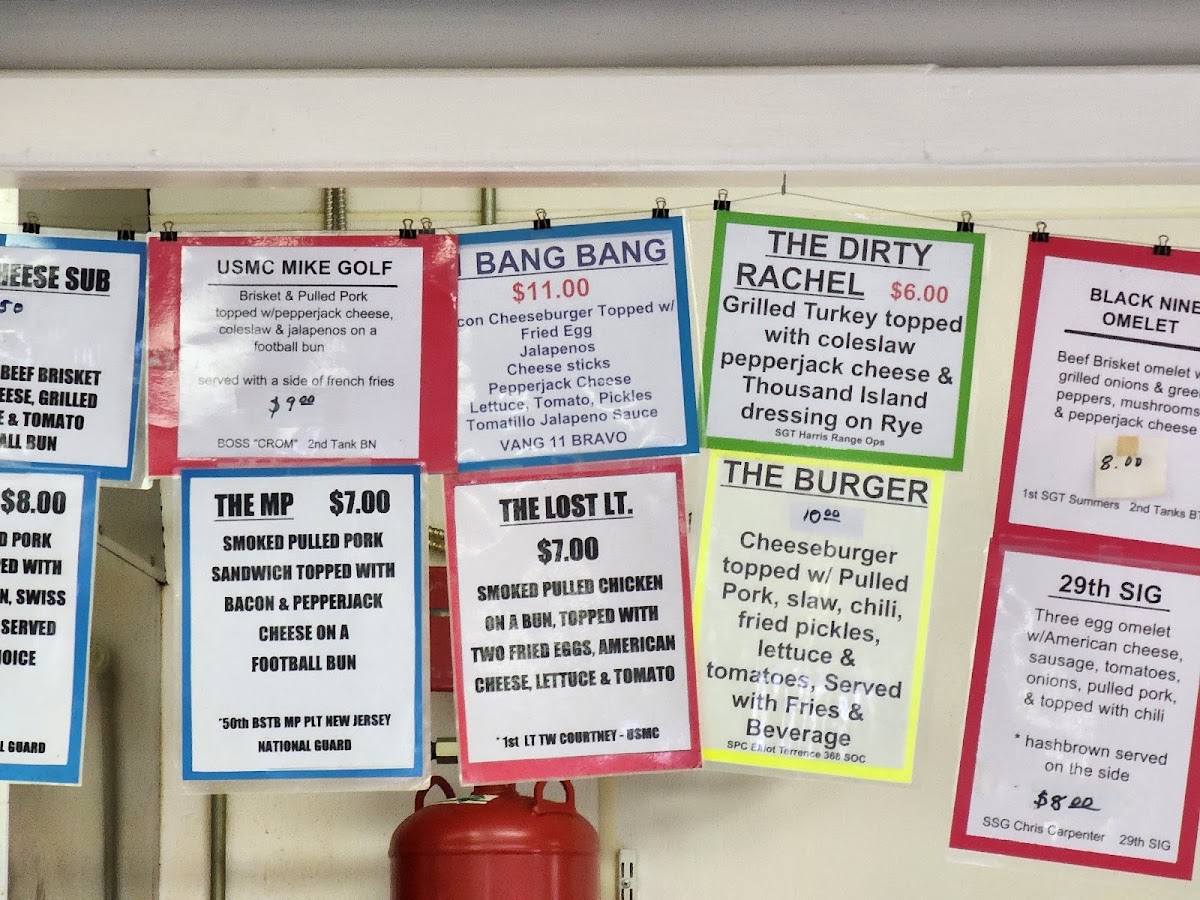 CHEESE SUB
50
BEEF BRISKET
GRILLED
& TOMATO
BUN
$8.00
PORK
WITH
SWISS
SERVED
GUARD
USMC MIKE GOLF
Brisket & Pulled Pork
topped w/pepperjack cheese,
coleslaw & jalapenos on a
football bun
served with a side of french fries
$9.00
BOSS "CROM" 2nd Tank BN
THE MP $7.00
SMOKED PULLED PORK
SANDWICH TOPPED WITH
BACON & PEPPERJACK
CHEESE ON A
FOOTBALL BUN
*50th BSTB MP PLT NEW JERSEY
NATIONAL GUARD
BANG BANG
$11.00
con Cheeseburger Topped w/
Fried Egg
Jalapenos
Cheese sticks
Pepperjack Cheese
Lettuce, Tomato, Pickles
Tomatillo Jalapeno Sauce
VANG 11 BRAVO
THE LOST LT.
$7.00
SMOKED PULLED CHICKEN
ON A BUN, TOPPED WITH
TWO FRIED EGGS, AMERICAN
CHEESE, LETTUCE & TOMATO
*1st LT TW COURTNEY - USMC
THE DIRTY
RACHEL $6.00
Grilled Turkey topped
with coleslaw
pepperjack cheese &
Thousand Island
dressing on Rye
SGT Harris Range Ops
THE BURGER
10.00
Cheeseburger
topped w/ Pulled
Pork, slaw, chili,
fried pickles,
lettuce &
tomatoes, Served
with Fries &
Beverage
SPC Elliot Terrence 368 SOC
BLACK NINE
OMELET
Beef Brisket omelet w
grilled onions & gree
peppers, mushrooms
& pepperjack cheese
8.00
1st SGT Summers 2nd Tanks BT
29th SIG
Three egg omelet
w/American cheese,
sausage, tomatoes,
onions, pulled pork,
& topped with chili
* hashbrown served
on the side
$8.00
SSG Chris Carpenter 29th SIG